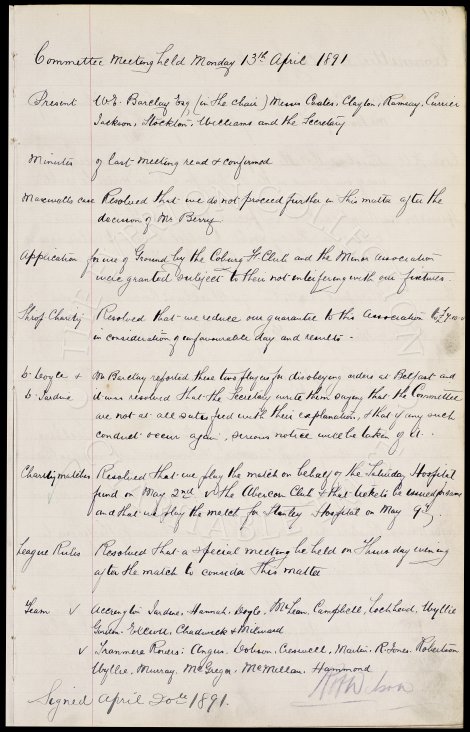 Committee Meeting held Monday 13th April 1891
Present W.E. Barclay Esq (in the chair) Messrs Coates, Clayton, Ramsay, Currier
Jackson, Stockton, Williams and the Secretary
Minutes of last meeting read & confirmed
Maxwells case Resolved that we do not proceed further in this matter after the
decision of Mr Berry
Application for use of Ground by the Coburg F. Club and the Minor Association
were granted subject to them not interfering with our fixtures.
Shrop Charity Resolved that we reduce our guarantee to this Association to
in consideration of unfavourable day and results.
D. Doyle & Mr Barclay reported these two players for disobeying orders at Belfast and
D. Jardine it was resolved that the Secretary write them saying that the Committee
are not at all satisfied with their explanation, & that if any such
conduct occur again, serious notice will be taken of it.
Charity matches Resolved that we play the match on behalf of the Saturday Hospital
fund on May 2nd v the Abercorn Club & that tickets be issued
and that we play the match for Stanley Hospital on May 9th
League Rules Resolved that a special meeting be held on Thursday evening
after the match to consider this matter
Team v Accrington Jardine, Hannah, Doyle, McLean, Campbell, Lochhead, Wyllie
Gordon, Elliott, Chadwick & Milward
v Tranmere Rovers: Angus, Dobson, Cresswell, Martin, R. Jones, Robertson
Wyllie, Murray, McGregor, McMillan, Hammond
Signed April 20th 1891.